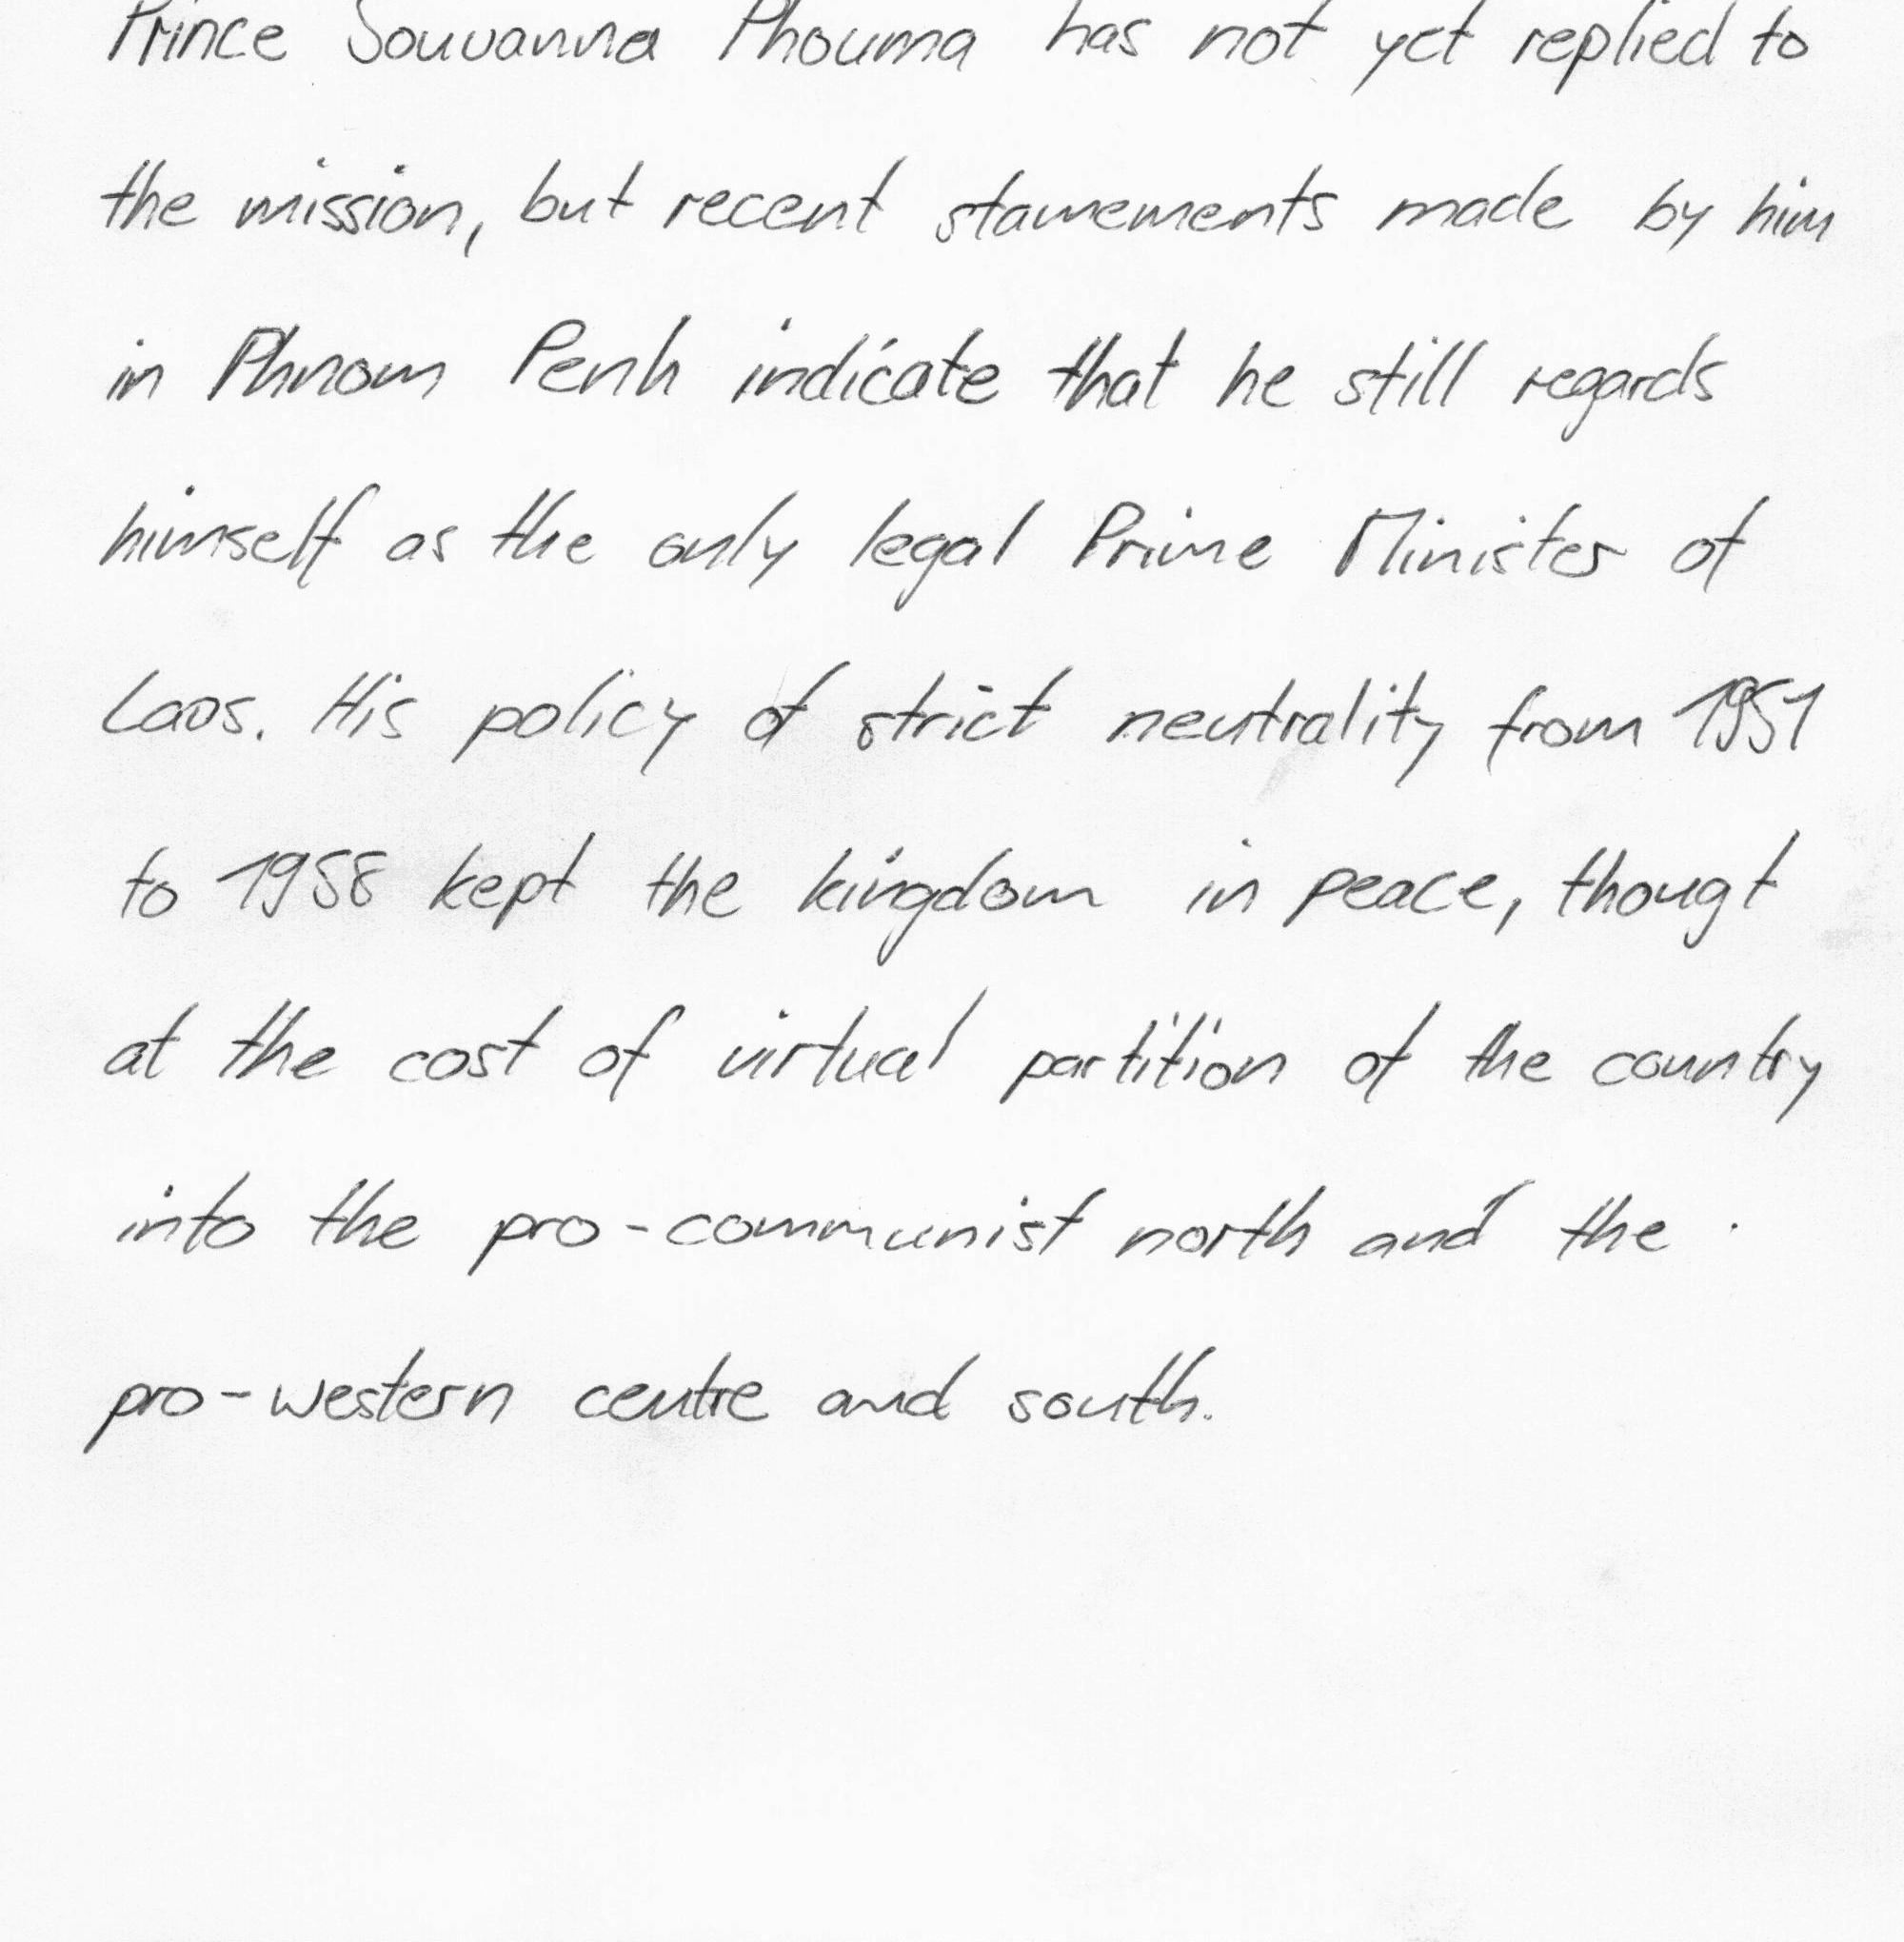 Prince Souvanna Phouma has not yet replied to
the mission, but recent stamements made by him
in Phnom Penh indicate that he still regards
himself as the only legal Prime Minister of
Laos. His policy of strict neutrality from 1951
to 1958 kept the kingdom in peace, thougt
at the cost of virtual partition of the country
into the pro-communist north and the
pro-western centre and south.